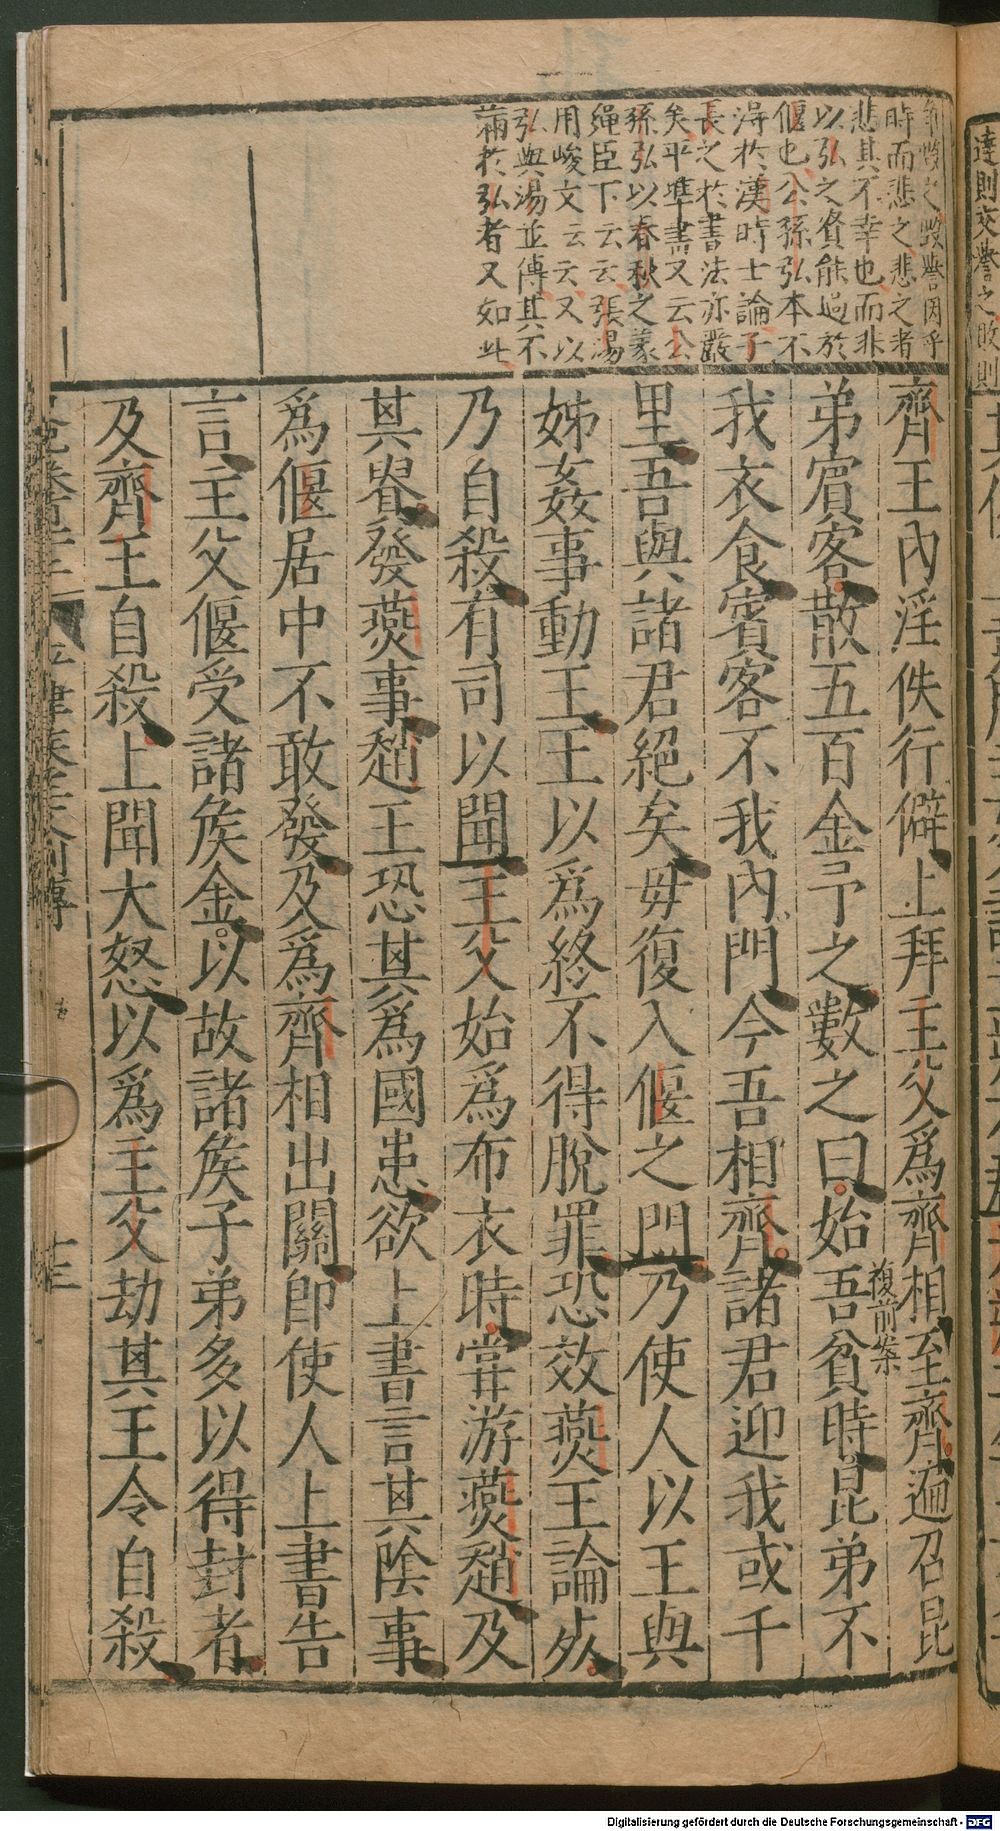 爭毀之毀譽因乎
時而悲之悲之者
悲其不幸也而非
以弘之賢能過於
偃也公孫弘本不
得於漢時士論子
長之於書法亦嚴
矣平準書又云公
孫弘以春秋之義
繩臣下云云張湯
用峻文云云又以
弘與湯並傅其不
滿於弘者又如此
齊王內淫佚行僻上拜主父爲齊相至齊遍召昆
複前案
弟賓客散五百金予之數之曰始吾貧時昆弟不
我衣食賓客不我內門今吾相齊諸君迎我或千
里吾與諸君絕矣毋復入偃之門乃使人以王與
姊姦事動王王以爲終不得脫罪恐效燕王論死
乃自殺有司以聞主父始爲布衣時嘗游燕趙及
其貴發燕事趙王恐其爲國患欲上書言其陰事
爲偃居中不敢發及爲齊相出關即使人上書告
言主父偃受諸矦金以故諸矦子弟多以得封者
及齊王自殺上聞大怒以爲主父劫其王令自殺
平津矦主父列傳
十三
達則交譽之敗則
Digitalisierung gefördert durch die Deutsche Forschungsgemeinschaft - DFG